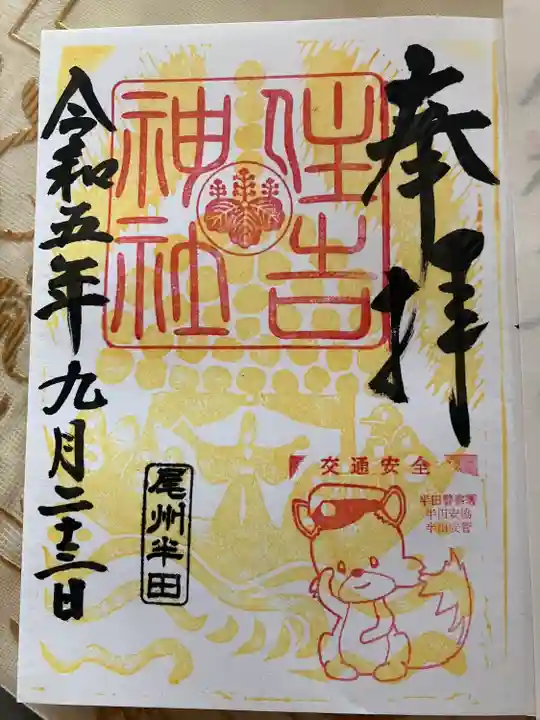 奉拝
住吉
神社
交通安全
半田警察署
半田安協
尾州半田
令和五年九月二十三日